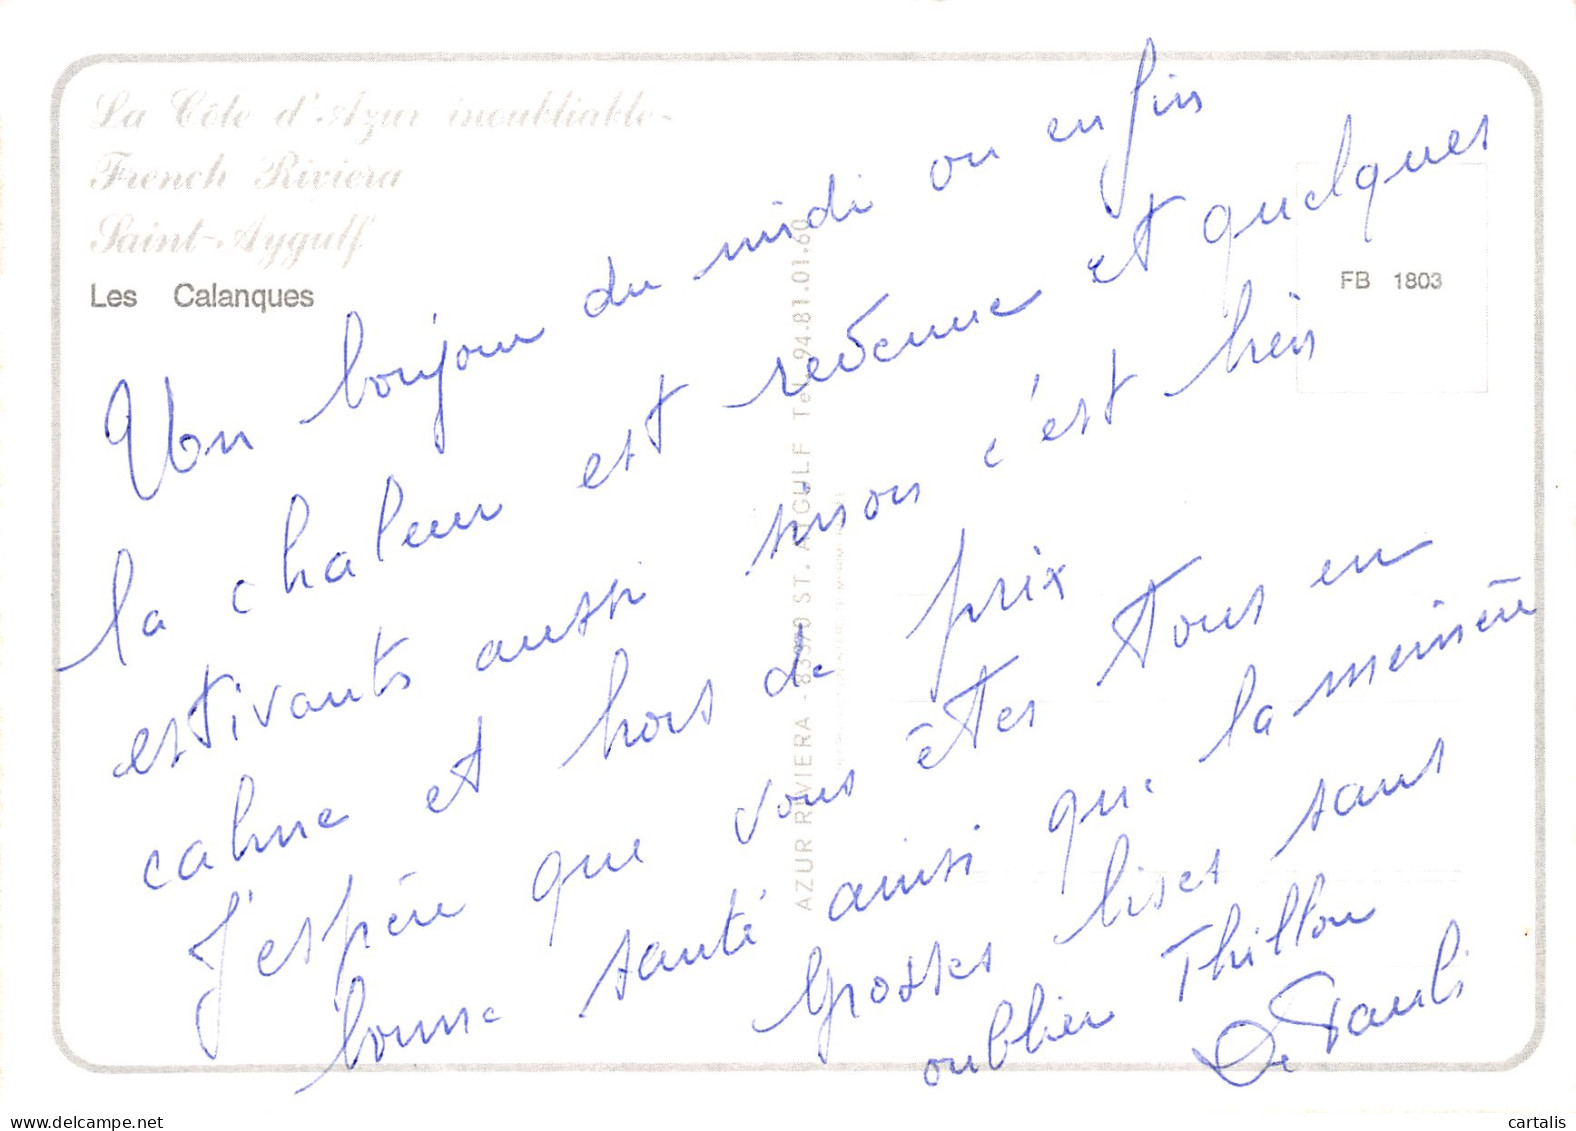 La Côte d'Azur inoubliable-
French Riviera
Saint-Aygulf
Les Calanques
FB 1803
AZUR RIVIERA - 83370 ST. AYGULF Tel. 94.81.01.60
Un bonjour du midi ou enfin
la chaleur est revenue et quelques
estivants aussi sinon c'est bien
calme et hors de prix
J'espère que vous êtes tous en
bonne santé ainsi que la
Grosses bises sans
oublier
delcampe.net
cartalis